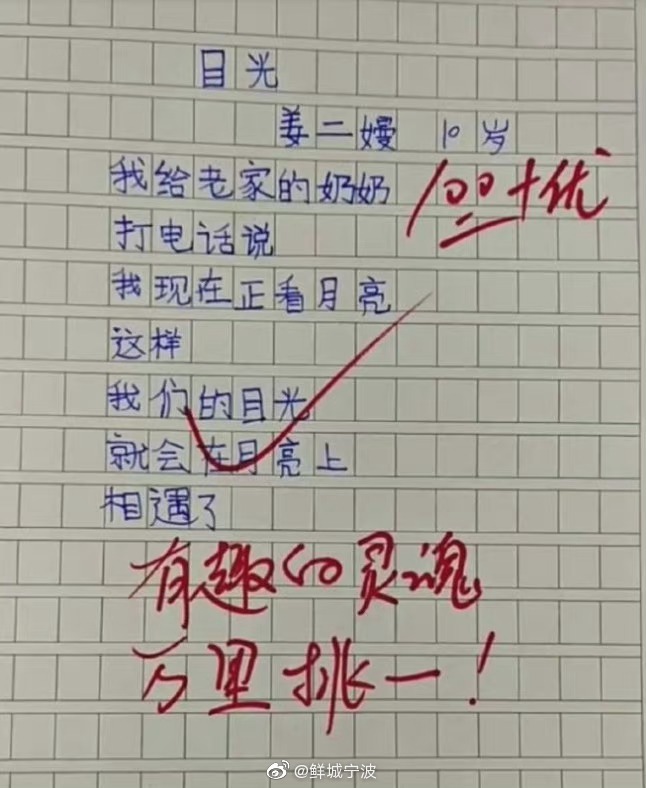 目光
姜二嫚 10岁
我给老家的奶奶
100+优
打电话说
我现在正看月亮
这样
我们的目光
就会在月亮上
相遇了
有趣的灵魂
万里挑一！
@鲜城宁波